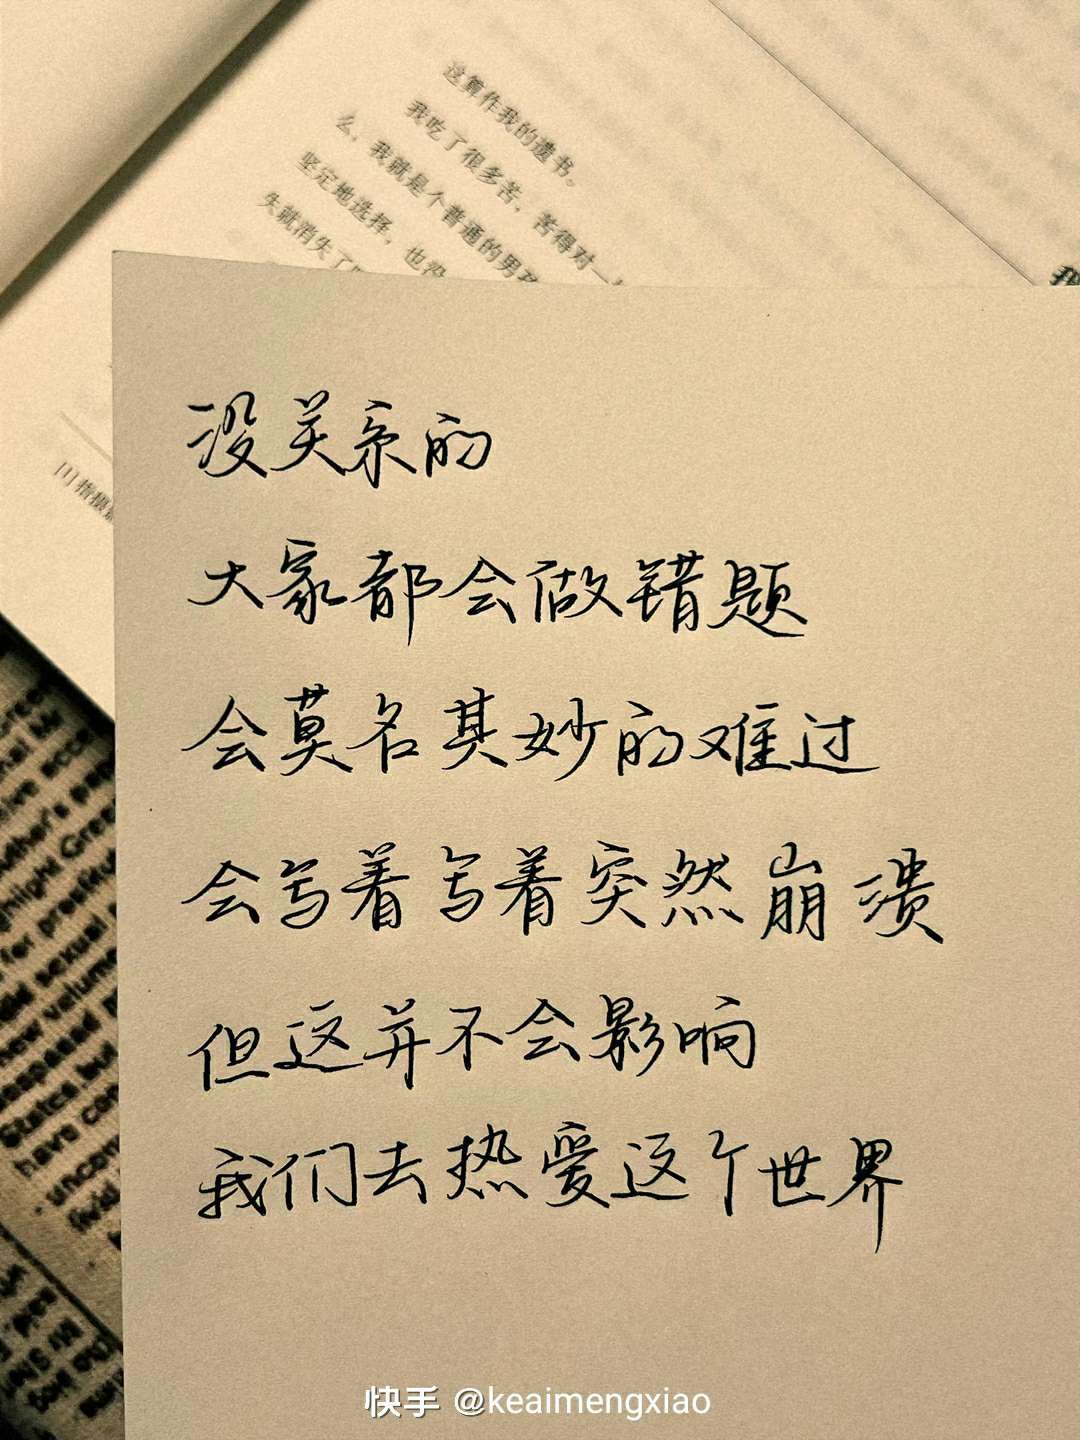 这算作我的遗书。
我吃了很多苦，苦得对一
么，我就是个普通的男孩
坚定地选择，也没
失就消失了
我
[1]指
没关系的
大家都会做错题
会莫名其妙的难过
会写着写着突然崩溃
但这并不会影响
我们去热爱这个世界
uther's
light Gree
for
sexual
new volume
States, but
have con
uncom
快手 @keaimengxiao